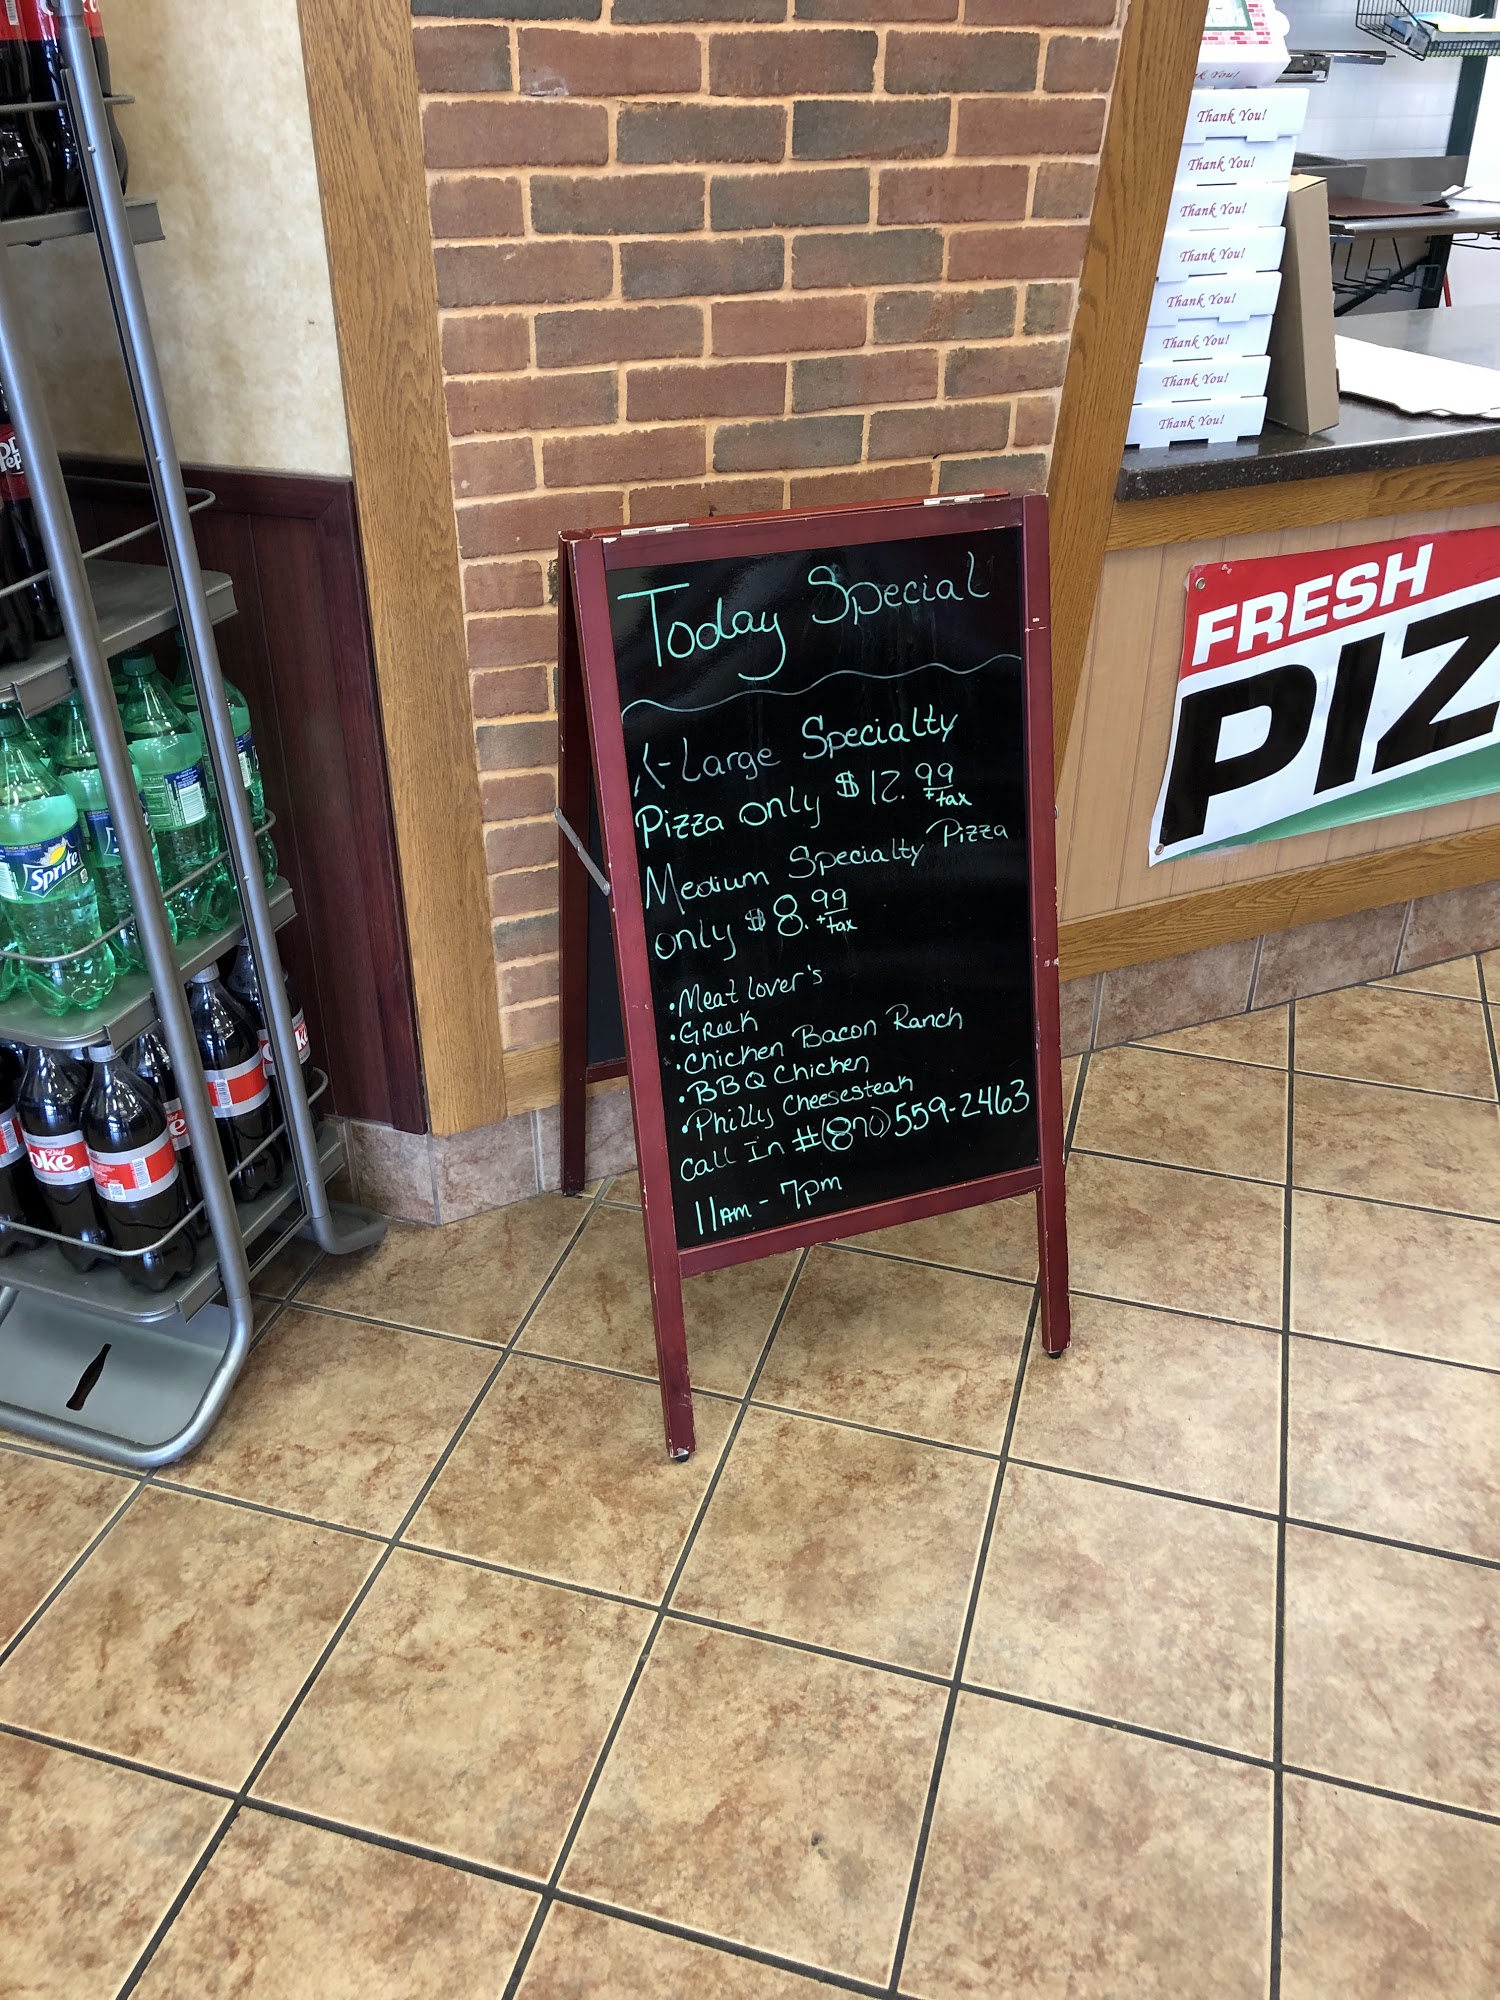 Today Special
X-Large Specialty
Pizza only $12.99
+tax
Medium Specialty Pizza
only $8.99
+tax
•Meat Lover's
•Greek
•Chicken Bacon Ranch
•BBQ Chicken
•Philly Cheesesteak
Call In #(870)559-2463
11am - 7pm
Thank You!
Thank You!
Thank You!
Thank You!
Thank You!
Thank You!
Thank You!
Thank You!
FRESH
PIZ
Sprite
Diet
oke